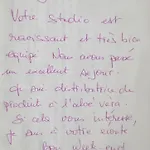 Votre Studio est
ravissant et très bien
équipé. Nous avons passé
un excellent séjour.
Je suis distributrice de
produits à l'aloé vera.
Si cela vous intéresse,
je suis à votre écoute